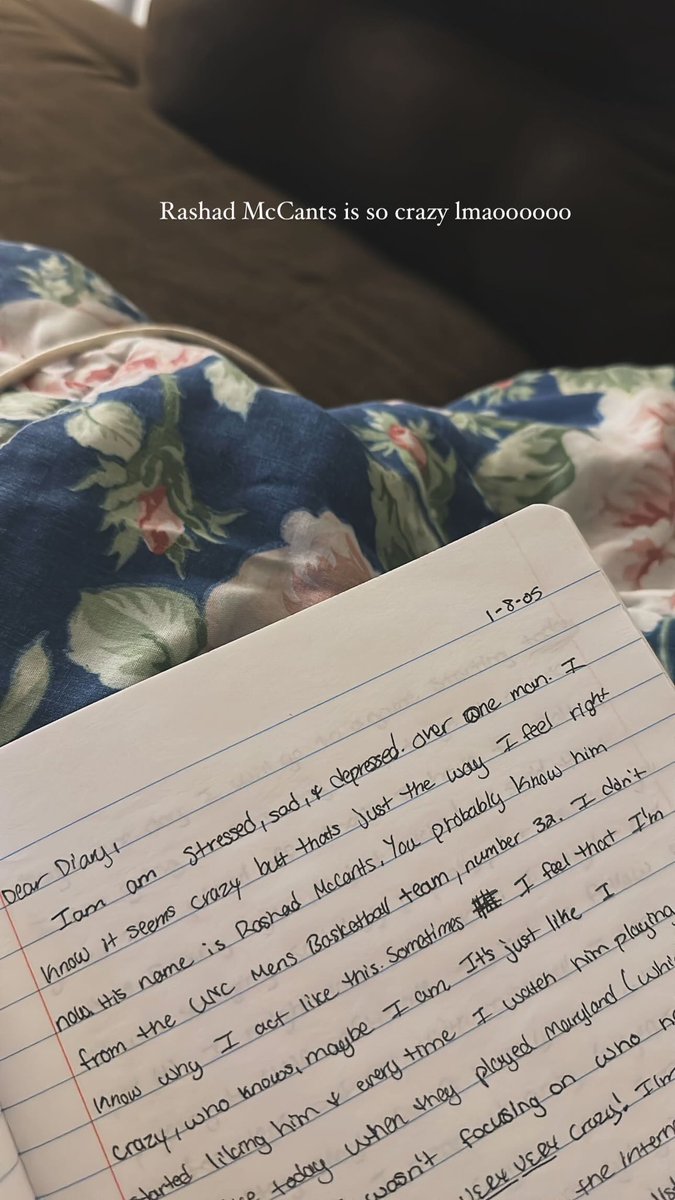 Rashad McCants is so crazy lmaoooooo
1-8-05
Dear Diary,
I am am stressed, sad, & depressed. over one man. I
know it seems crazy but thats just the way I feel right
now. His name is Rashad McCants. You probably know him
from the UNC Mens Basketball team, number 32. I don't
know why I act like this. Sometimes I feel that I'm
crazy, who knows, maybe I am. It's just like I
started liking him & every time I watch him playing
today when they played Maryland (whi
wasn't focusing on who
very very crazy! I'm
the intern